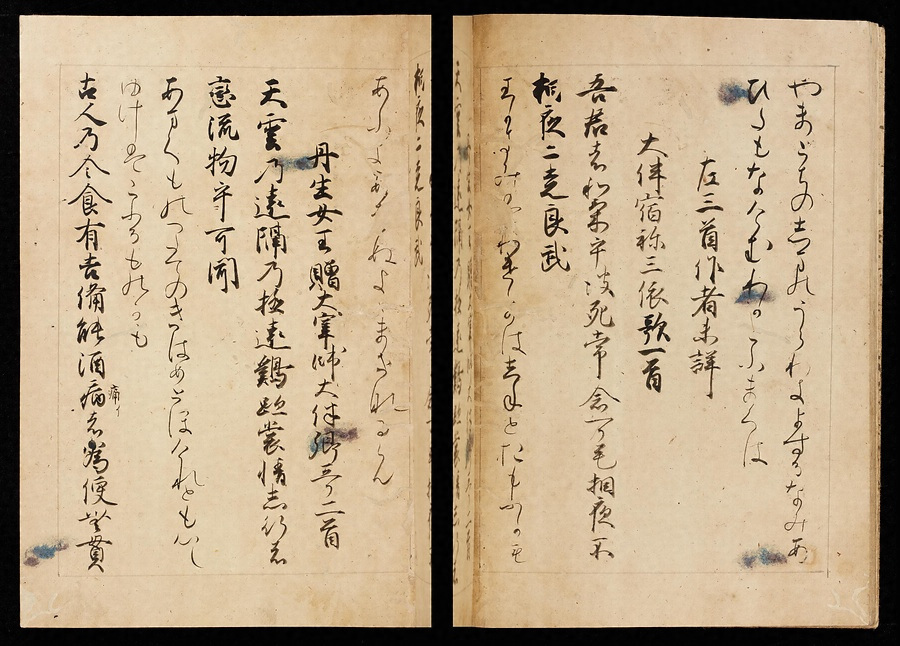 やまとちの志まのうらわによするなみあ
ひたもなけむわかこふまくは
左三首作者未詳
大伴宿祢三依歌一首
吾君者和氣乎波死常念可毛相夜不
相夜二走良武
わかきみかわれをは志ねとおもふかも
あふよあはぬよまされるらん
丹生女王贈大宰帥大伴卿哥二首
天雲乃遠隔乃極遠鷄跡裳情志行者
戀流物乎可聞
あまくものへたてのきはめとほけれとも心し
ゆけはこふるものかも
古人乃令食有吉備能酒病者為便無貫
痛イ